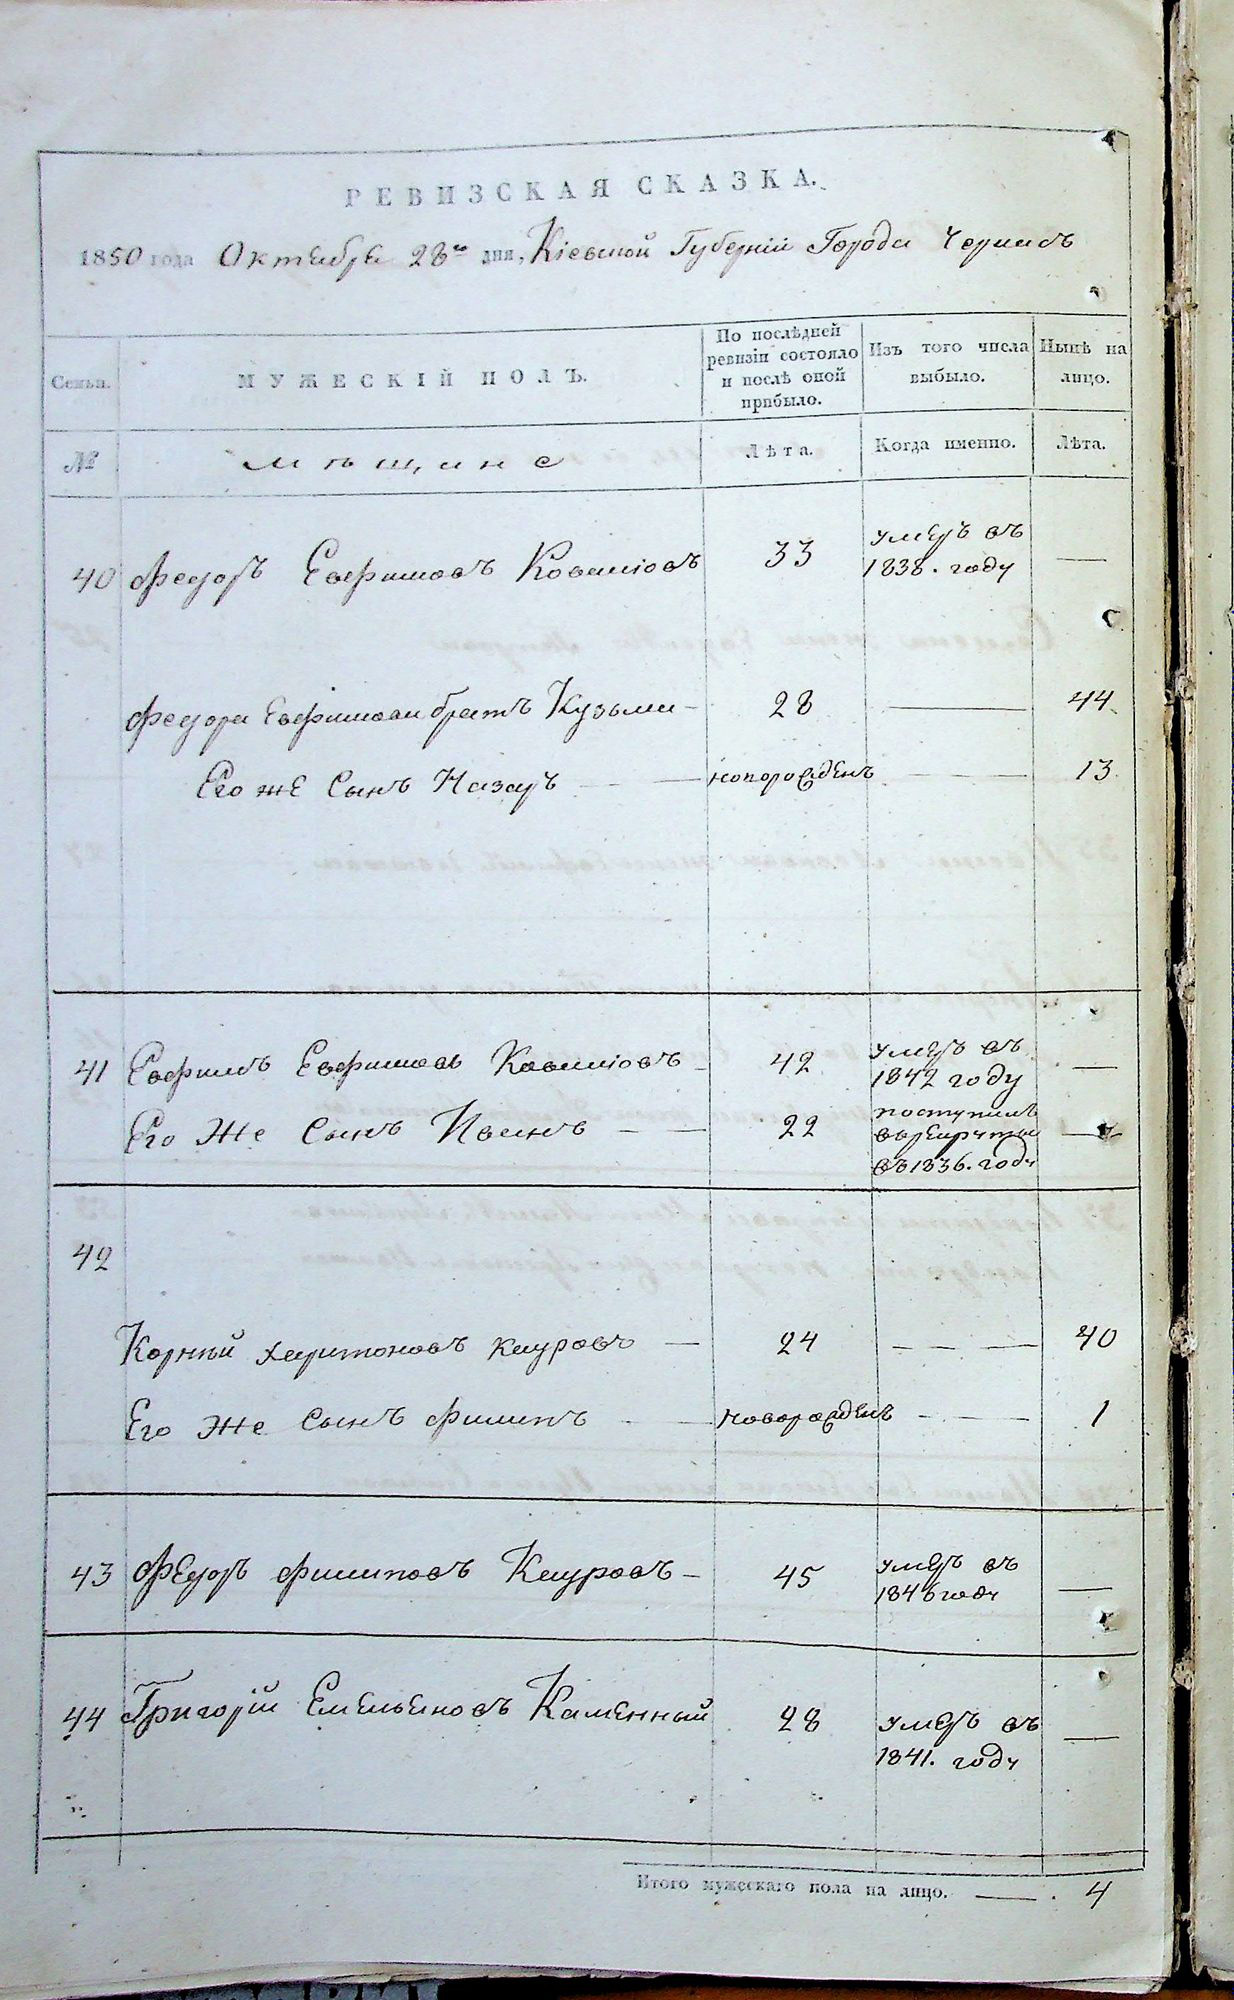 РЕВИЗСКАЯ СКАЗКА.
1850 года Октября 28го дня, Кіевской Губерніи Города Черкасъ
Семьи.
МУЖЕСКІЙ ПОЛЪ.
По послѣдней
ревизіи состояло
и послѣ оной
прибыло.
Изъ того числа
выбыло.
Нынѣ на
лицо.
№
мѣщане
Лѣта.
Когда именно.
Лѣта.
40 Федоръ Евфимовъ 33
умеръ въ
1838. году —
Федора Евфимова братъ Кузьма — 28 — 44
Его же Сынъ Назаръ — новорожденъ — 13
41 Евфимъ Евфимовъ 42
умеръ въ
1842 году —
Его Же Сынъ Иванъ — 22
поступилъ
в рекруты
въ 1836. году —
42
Корній Харитоновъ Кауровъ — 24 — — — 40
Его Же Сынъ Филипъ — новорожденъ — 1
43 Федоръ Филиповъ Кауровъ — 45
умеръ въ
1846 году —
44 Григорій Емельяновъ Каменный 28
умеръ въ
1841. году —
Итого мужескаго пола на лицо. — 4